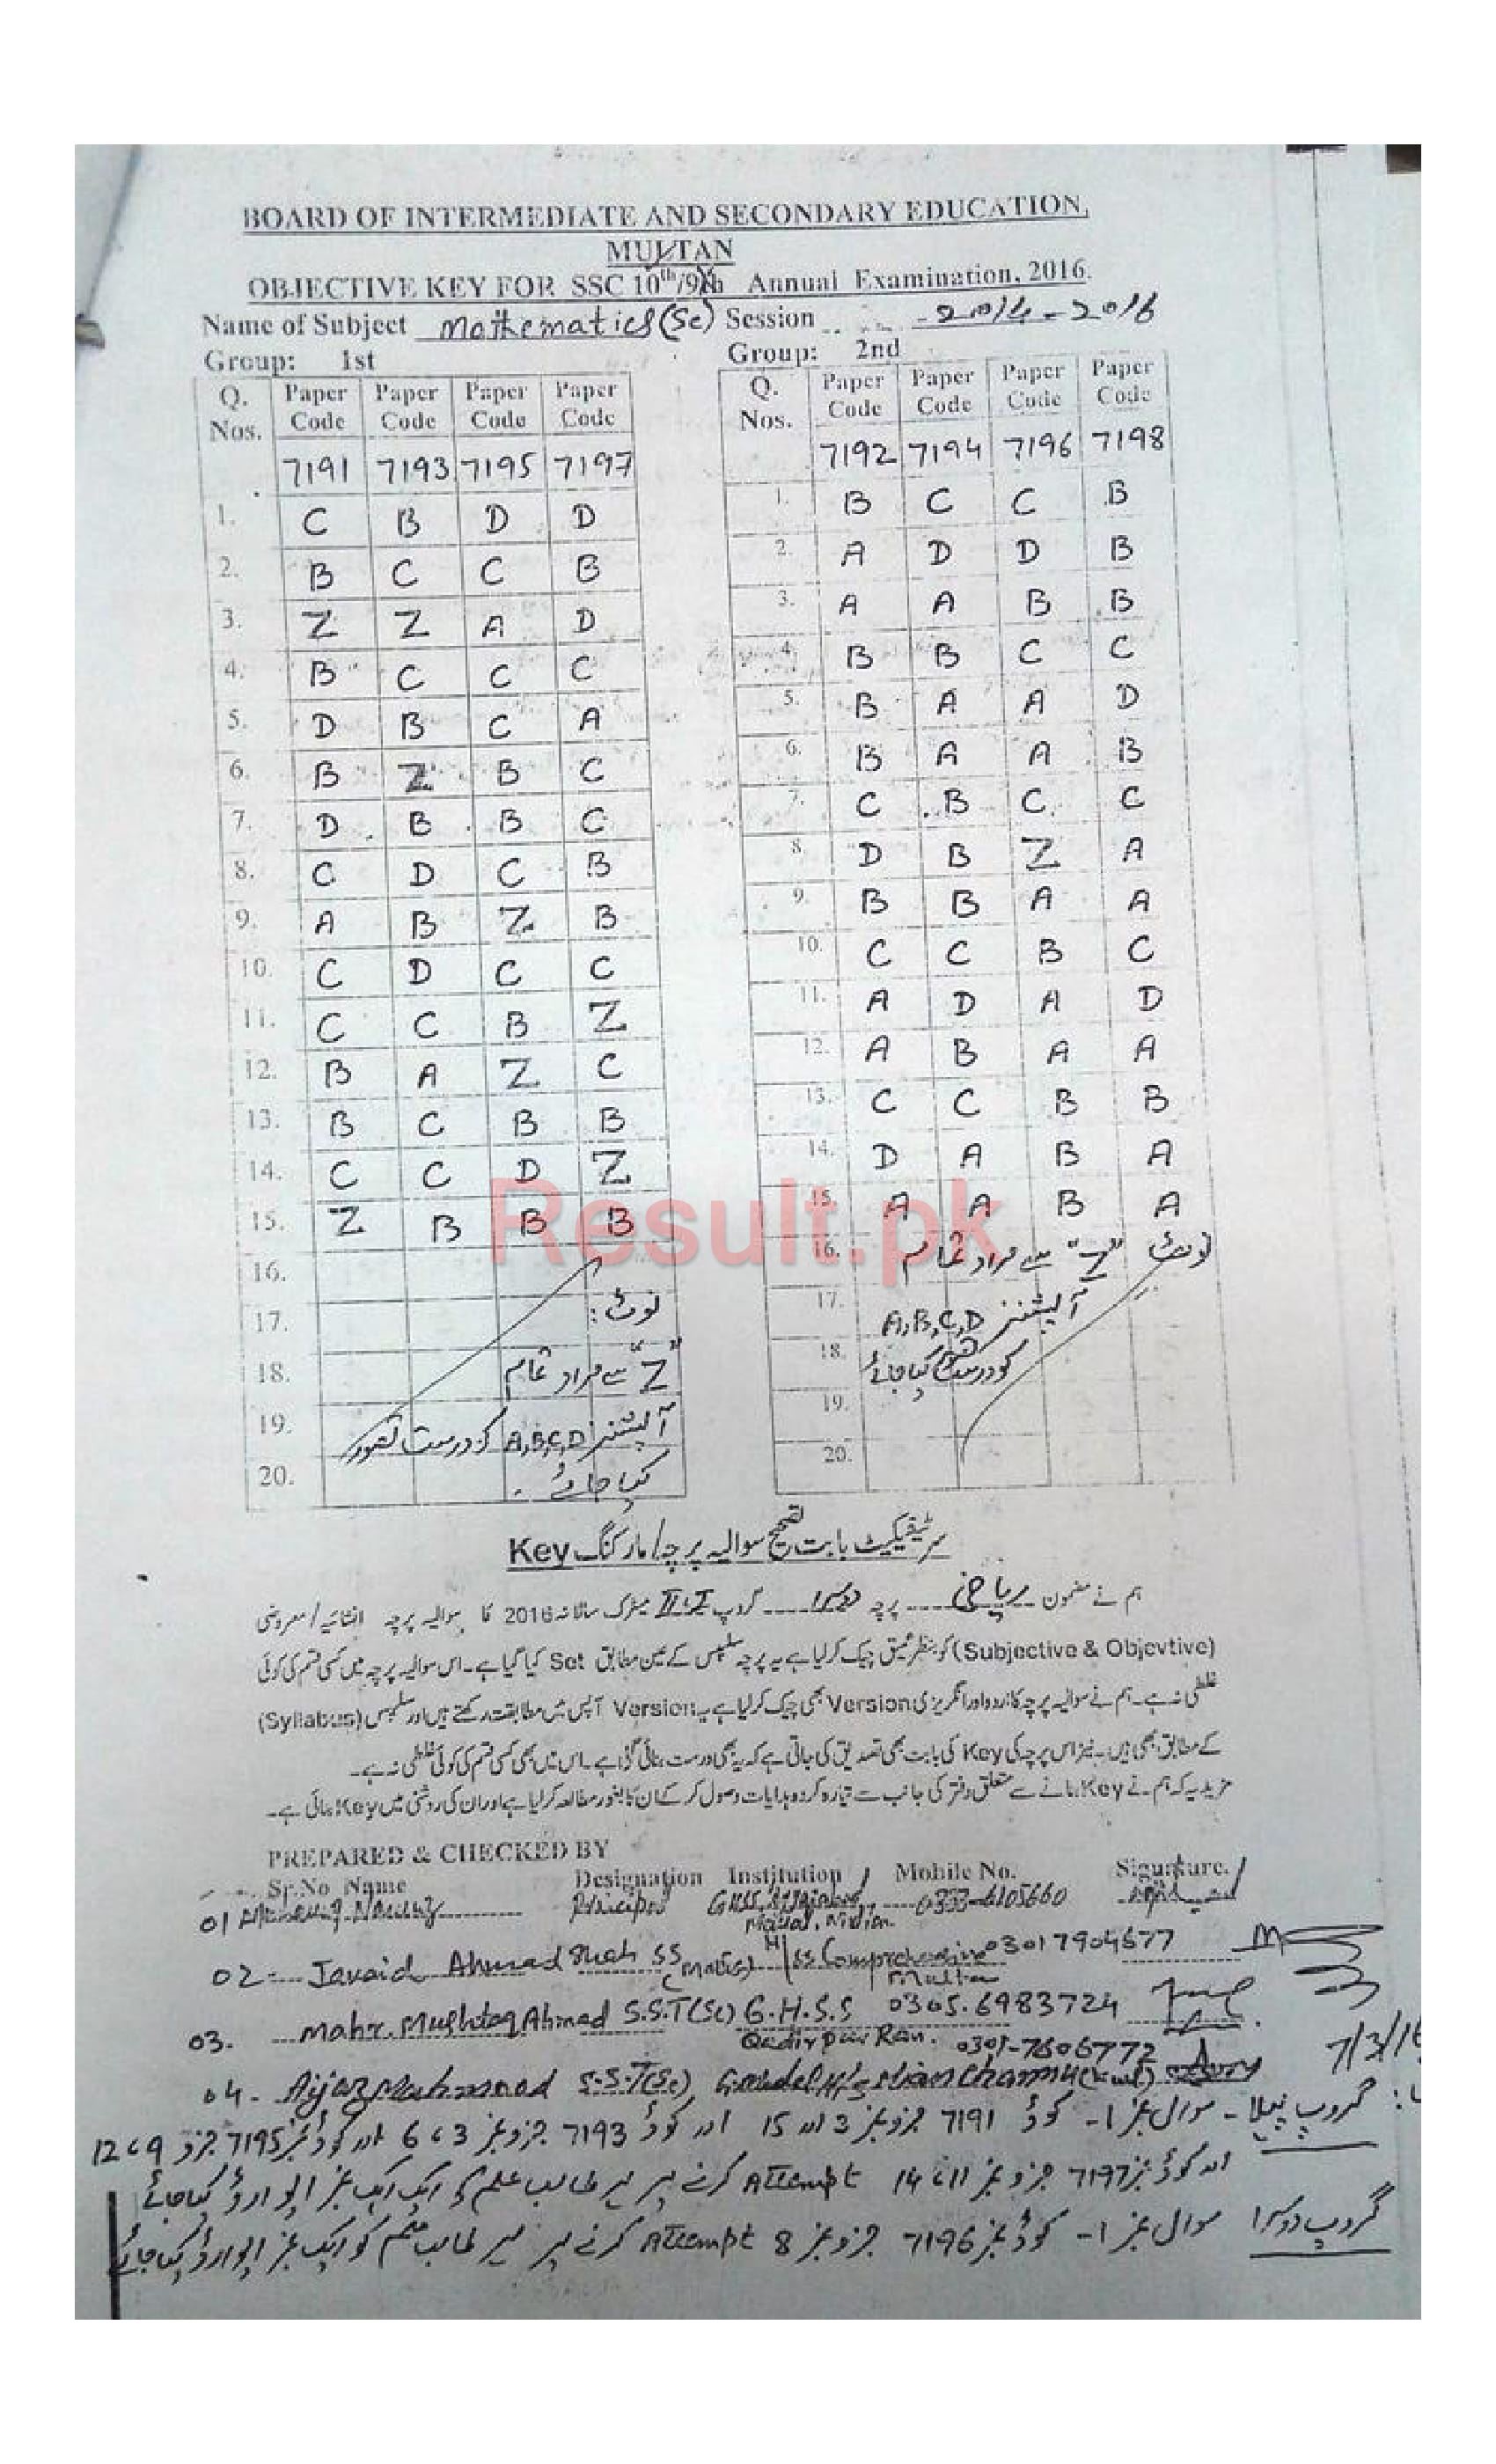 BOARD OF INTERMEDIATE AND SECONDARY EDUCATION,
MULTAN
OBJECTIVE KEY FOR SSC 10th/9th Annual Examination, 2016.
Name of Subject Mathematics (Sc) Session 2014-2016
Group: 1st
Q. Nos. Paper Code Paper Code Paper Code Paper Code
7191 7193 7195 7197
1. C B D D
2. B C C B
3. Z Z A D
4. B C C C
5. D B C A
6. B Z B C
7. D B B C
8. C D C B
9. A B Z B
10. C D C C
11. C C B Z
12. B A Z C
13. B C B B
14. C C D Z
15. Z B B B
16.
17. نوٹ:
18. "Z" سے مراد تمام
19. آپشنز A,B,C,D کو درست تصور
20. کیا جائے.
Group: 2nd
Q. Nos. Paper Code Paper Code Paper Code Paper Code
7192 7194 7196 7198
1. B C C B
2. A D D B
3. A A B B
4. B B C C
5. B A A D
6. B A A B
7. C B C C
8. D B Z A
9. B B A A
10. C C B C
11. A D A D
12. A B A A
13. C C B B
14. D A B A
15. A A B A
16. نوٹ "Z" سے مراد تمام
17. آپشنز A,B,C,D
18. کو درست کیا جائے
19.
20.
Result.pk
سرٹیفیکیٹ بابت تصحیح سوالیہ پرچہ/مارکنگ Key
ہم نے مضمون ریاضی پرچہ دوسرا گروپ I&II میٹرک سالانہ 2016 کا سوالیہ پرچہ انشائیہ/معروضی
(Subjective & Objevtive) کو بنظر عمیق چیک کرلیا ہے یہ پرچہ سلیبس کے عین مطابق Set کیا گیا ہے۔ اس سوالیہ پرچہ میں کسی قسم کی کوئی
غلطی نہ ہے۔ ہم نے سوالیہ پرچہ کا اردو اور انگریزی Version بھی چیک کرلیا ہے یہ Version آپس میں مطابقت رکھتے ہیں اور سلیبس (Syllabus)
کے مطابق بھی ہیں۔ نیز اس پرچہ کی Key کی بابت بھی تصدیق کی جاتی ہے کہ یہ بھی درست بنائی گئی ہے۔ اس میں بھی کسی قسم کی کوئی غلطی نہ ہے۔
مزید یہ کہ ہم نے Key بنانے سے متعلق دفتر کی جانب سے تیار کردہ ہدایات وصول کر کے ان کا بغور مطالعہ کرلیا ہے اور ان کی روشنی میں Key بنائی ہے۔
PREPARED & CHECKED BY
Sr.No Name Designation Institution Mobile No. Signature.
01 Principal GHSS 0333-6105660
02 Javaid Ahmad Shah SS (Maths) H/SS Comprehensive Multan 03017904577
03. Mahr. Mushtaq Ahmad S.S.T(Sc) G.H.S.S Qadir pur Ran. 0305.6983724
04- Aijaz Mahmood S.S.T(Sc) 0301-7606772
7/3/16
گروپ پہلا - سوال نمبر 1- کوڈ 7191 جزو نمبر 3 اور 15 اور کوڈ 7193 جزو نمبر 3، 6 اور کوڈ نمبر 7195 جزو 9، 12
اور کوڈ نمبر 7197 جزو نمبر 11، 14 Attempt کرنے پر ہر طالب علم کو ایک ایک نمبر ایوارڈ کیا جائے
گروپ دوسرا سوال نمبر 1- کوڈ نمبر 7196 جزو نمبر 8 Attempt کرنے پر ہر طالب علم کو ایک نمبر ایوارڈ کیا جائے